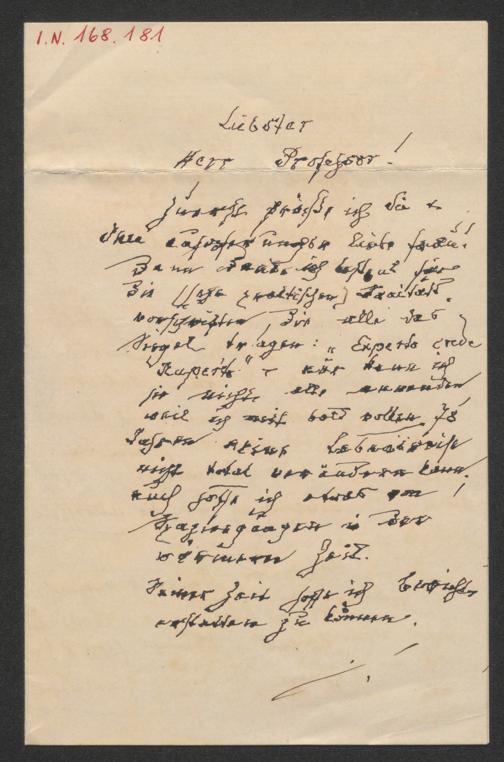 I.N. 168.181
Liebster
Herr Professor!
Zuerst grüße ich Sie &
Ihre
Dann danke ich bestens für
die (sehr praktischen) Diaitäts-
vorschriften, die alle das
Siegel tragen: "Experto crede
Ruperto" – nur kann ich
sie nicht alle anwenden
weil ich mit bald vollen 73
Jahren meine Lebensweise
nicht total verändern kann.
Auch hoffe ich etwas von
Spaziergängen in der
wärmeren Zeit.
Seiner Zeit hoffe ich Bericht
erstatten zu können.